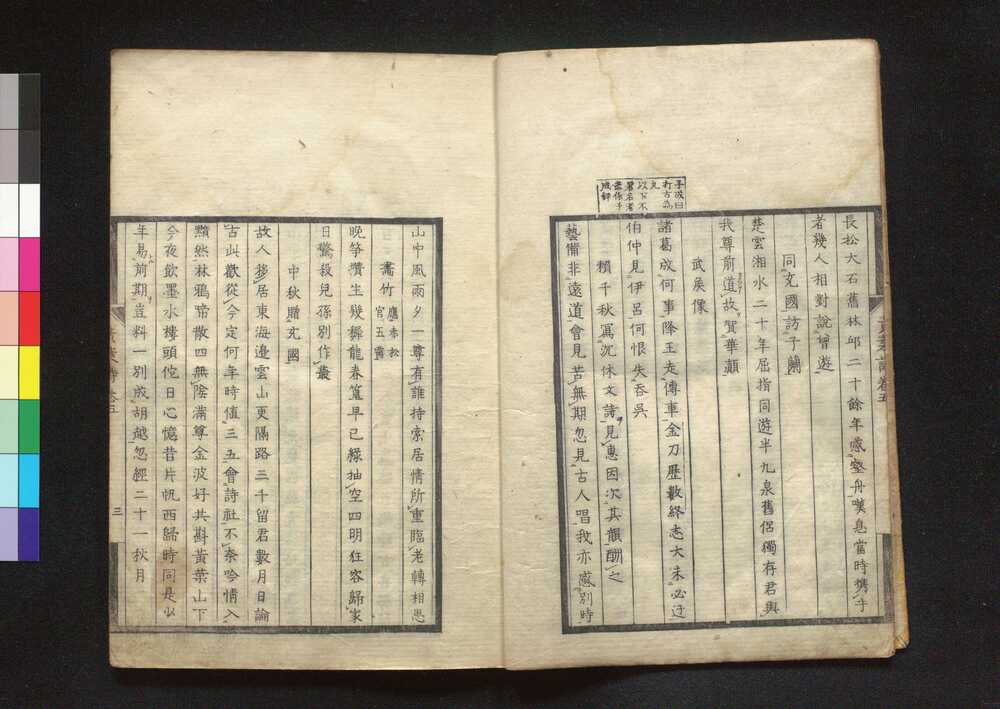 長松大石舊林邱二十餘年感壑舟嘆息當時携手
者幾人相對說曾遊
同文國訪子蘭
楚雲湘水二十年屈指同遊半九泉舊侶獨存君與
我尊前道故賀華顛
武矣像
諸葛成何事降王走傳車金刀歷數終志大未必迂
伯仲見伊呂何恨失吞吳
賴千秋寫沉休文詩見惠因次其韻酬之
藝備非遠道會見苦無期忽見古人唱我亦感別時
山中風雨夕一尊有誰持索居情所重臨老轉相思
竹
晚笋攢生幾舞龍春篁早已綠抽空四明狂客歸家
日驚殺兒孫別作叢
中秋贈文國
故人移居東海邊雲山更隔路三千留君數月日論
古此歡從今定何年時值三五會詩社不奈吟情入
顥然林鴉啼散四無陰滿尊金波好共斟黃葉山下
今夜飲墨水樓頭佗日心憶昔片帆西歸時同是少
年易前期豈料一別成胡越忽經二十一秋月
三